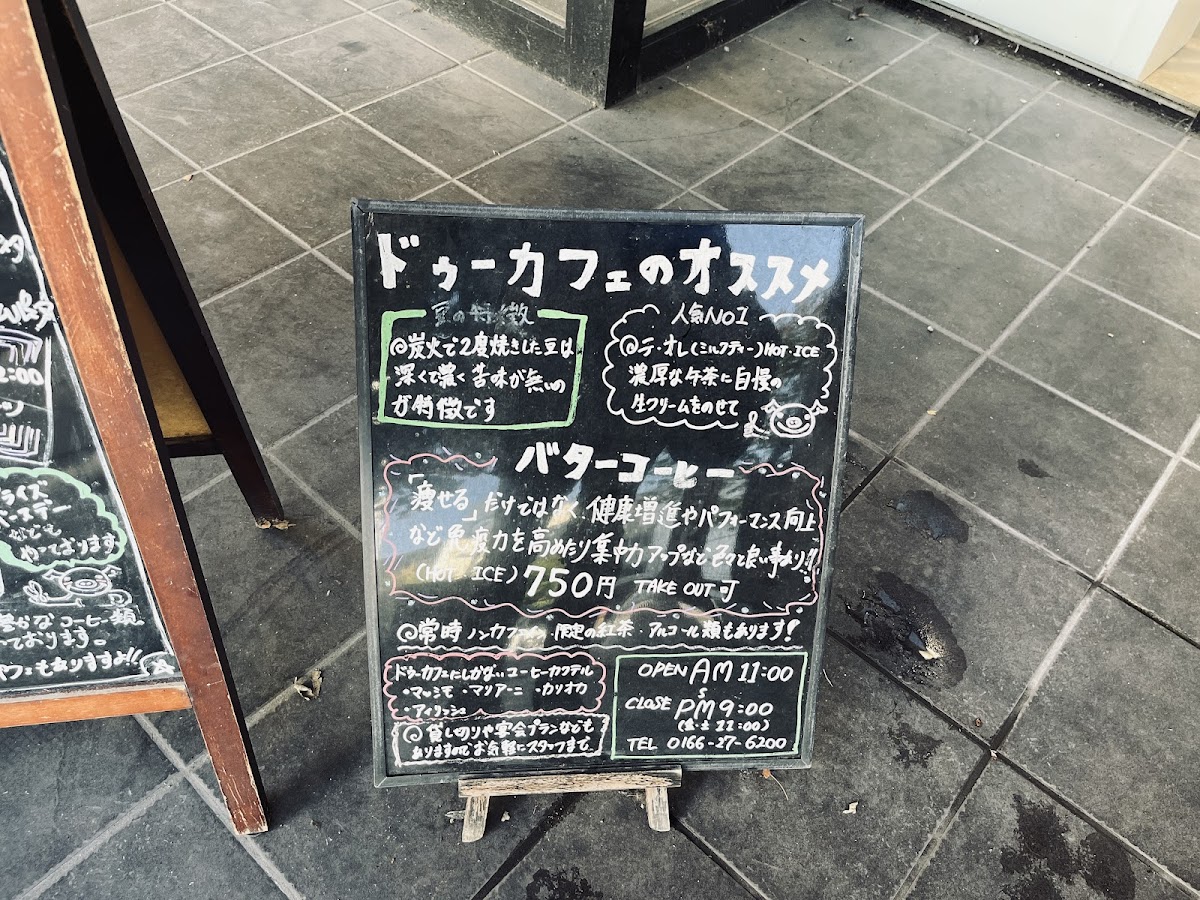 ドゥーカフェのオススメ
豆の特徴
◎炭火で2度焼きした豆は
深くて濃く苦味が無いの
が特徴です
人気NO1
◎テ・オレ(ミルクティー)HOT・ICE
濃厚な午茶に自慢の
生クリームをのせて
バターコーヒー
「痩せる」だけではなく、健康増進やパフォーマンス向上
など免疫力を高めたり集中力アップなど色々と良い事あり!!
(HOT・ICE) 750円 TAKE OUT 可
◎常時ノンカフェイン・限定の紅茶・アルコール類もあります!
ドゥーカフェにしかないコーヒーカクテル
・マッシモ ・マリアーニ ・カリオカ
・アイリッシュ
◎貸しきりや宴会プランなども
ありますのでお気軽にスタッフまで。
OPEN AM 11:00
S
CLOSE PM 9:00
(金・土 11:00)
TEL 0166-27-6200
2:00
ライズ
なども
やっております
かなコーヒー類
ております。
フェもありますよ!!